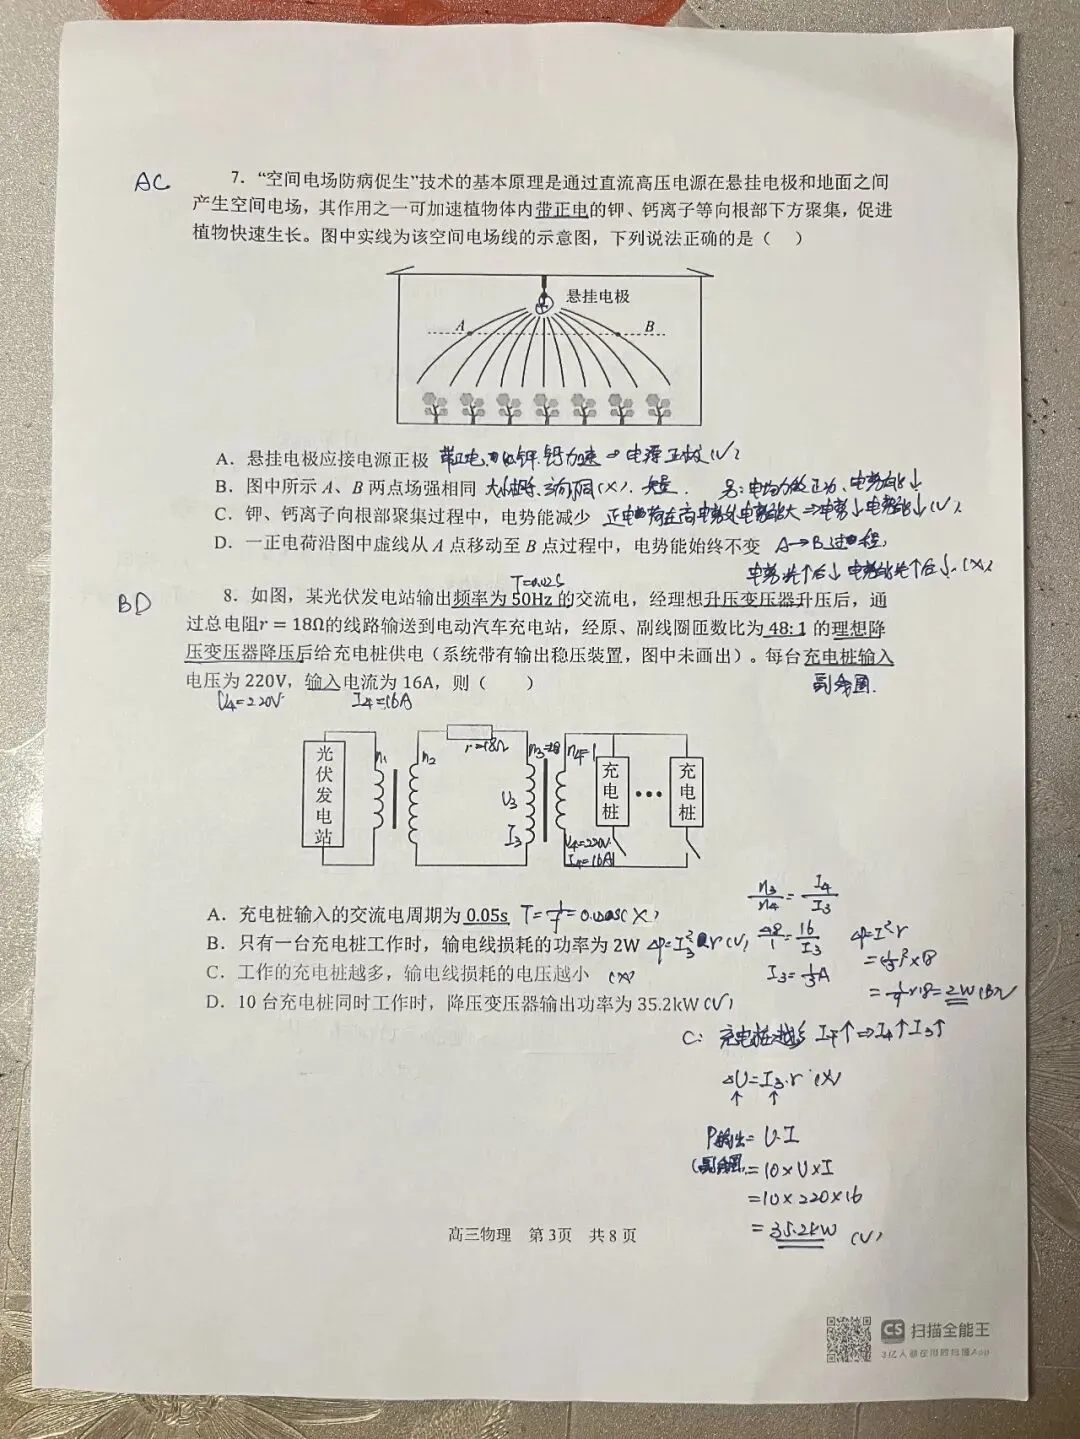 AC
7. “空间电场防病促生”技术的基本原理是通过直流高压电源在悬挂电极和地面之间
产生空间电场，其作用之一可加速植物体内带正电的钾、钙离子等向根部下方聚集，促进
植物快速生长。图中实线为该空间电场线的示意图，下列说法正确的是（ ）
悬挂电极
A
B
A. 悬挂电极应接电源正极 带正电、钾、钙加速⇒电源正极(√)
B. 图中所示 A、B 两点场强相同
C. 钾、钙离子向根部聚集过程中，电势能减少
D. 一正电荷沿图中虚线从 A 点移动至 B 点过程中，电势能始终不变 A→B过程,
电势先↑后↓ 电势能先↑后↓. (×)
T=0.02S
BD
8. 如图，某光伏发电站输出频率为 50Hz 的交流电，经理想升压变压器升压后，通
过总电阻r = 18Ω的线路输送到电动汽车充电站，经原、副线圈匝数比为 48: 1 的理想降
压变压器降压后给充电桩供电（系统带有输出稳压装置，图中未画出）。每台充电桩输入
电压为 220V，输入电流为 16A，则（ ）
副线圈.
U4=220V
I4=16A
光伏发电站
n1
n2
r=18Ω
n3=48
n4=1
U3
I3
U4=220V
I4=16A
充电桩
充电桩
n3/n4=I4/I3
A. 充电桩输入的交流电周期为 0.05s
B. 只有一台充电桩工作时，输电线损耗的功率为 2W ΔP=I3²r (√)
48/1=16/I3
ΔP=I²r
C. 工作的充电桩越多，输电线损耗的电压越小 (×)
I3=1/3A
=(1/3)²×18
D. 10 台充电桩同时工作时，降压变压器输出功率为 35.2kW (√)
=1/9×18=2W
C: 充电桩越多 I↑⇒I4↑I3↑
ΔU=I3·r (×)
↑ ↑
P输出=U·I
(副线圈)=10×U×I
=10×220×16
=35.2kW (√)
高三物理 第3页 共8页
CS 扫描全能王
3亿人都在用的扫描App